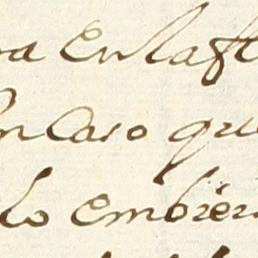 ra En laſt
en Caso que
lo embier